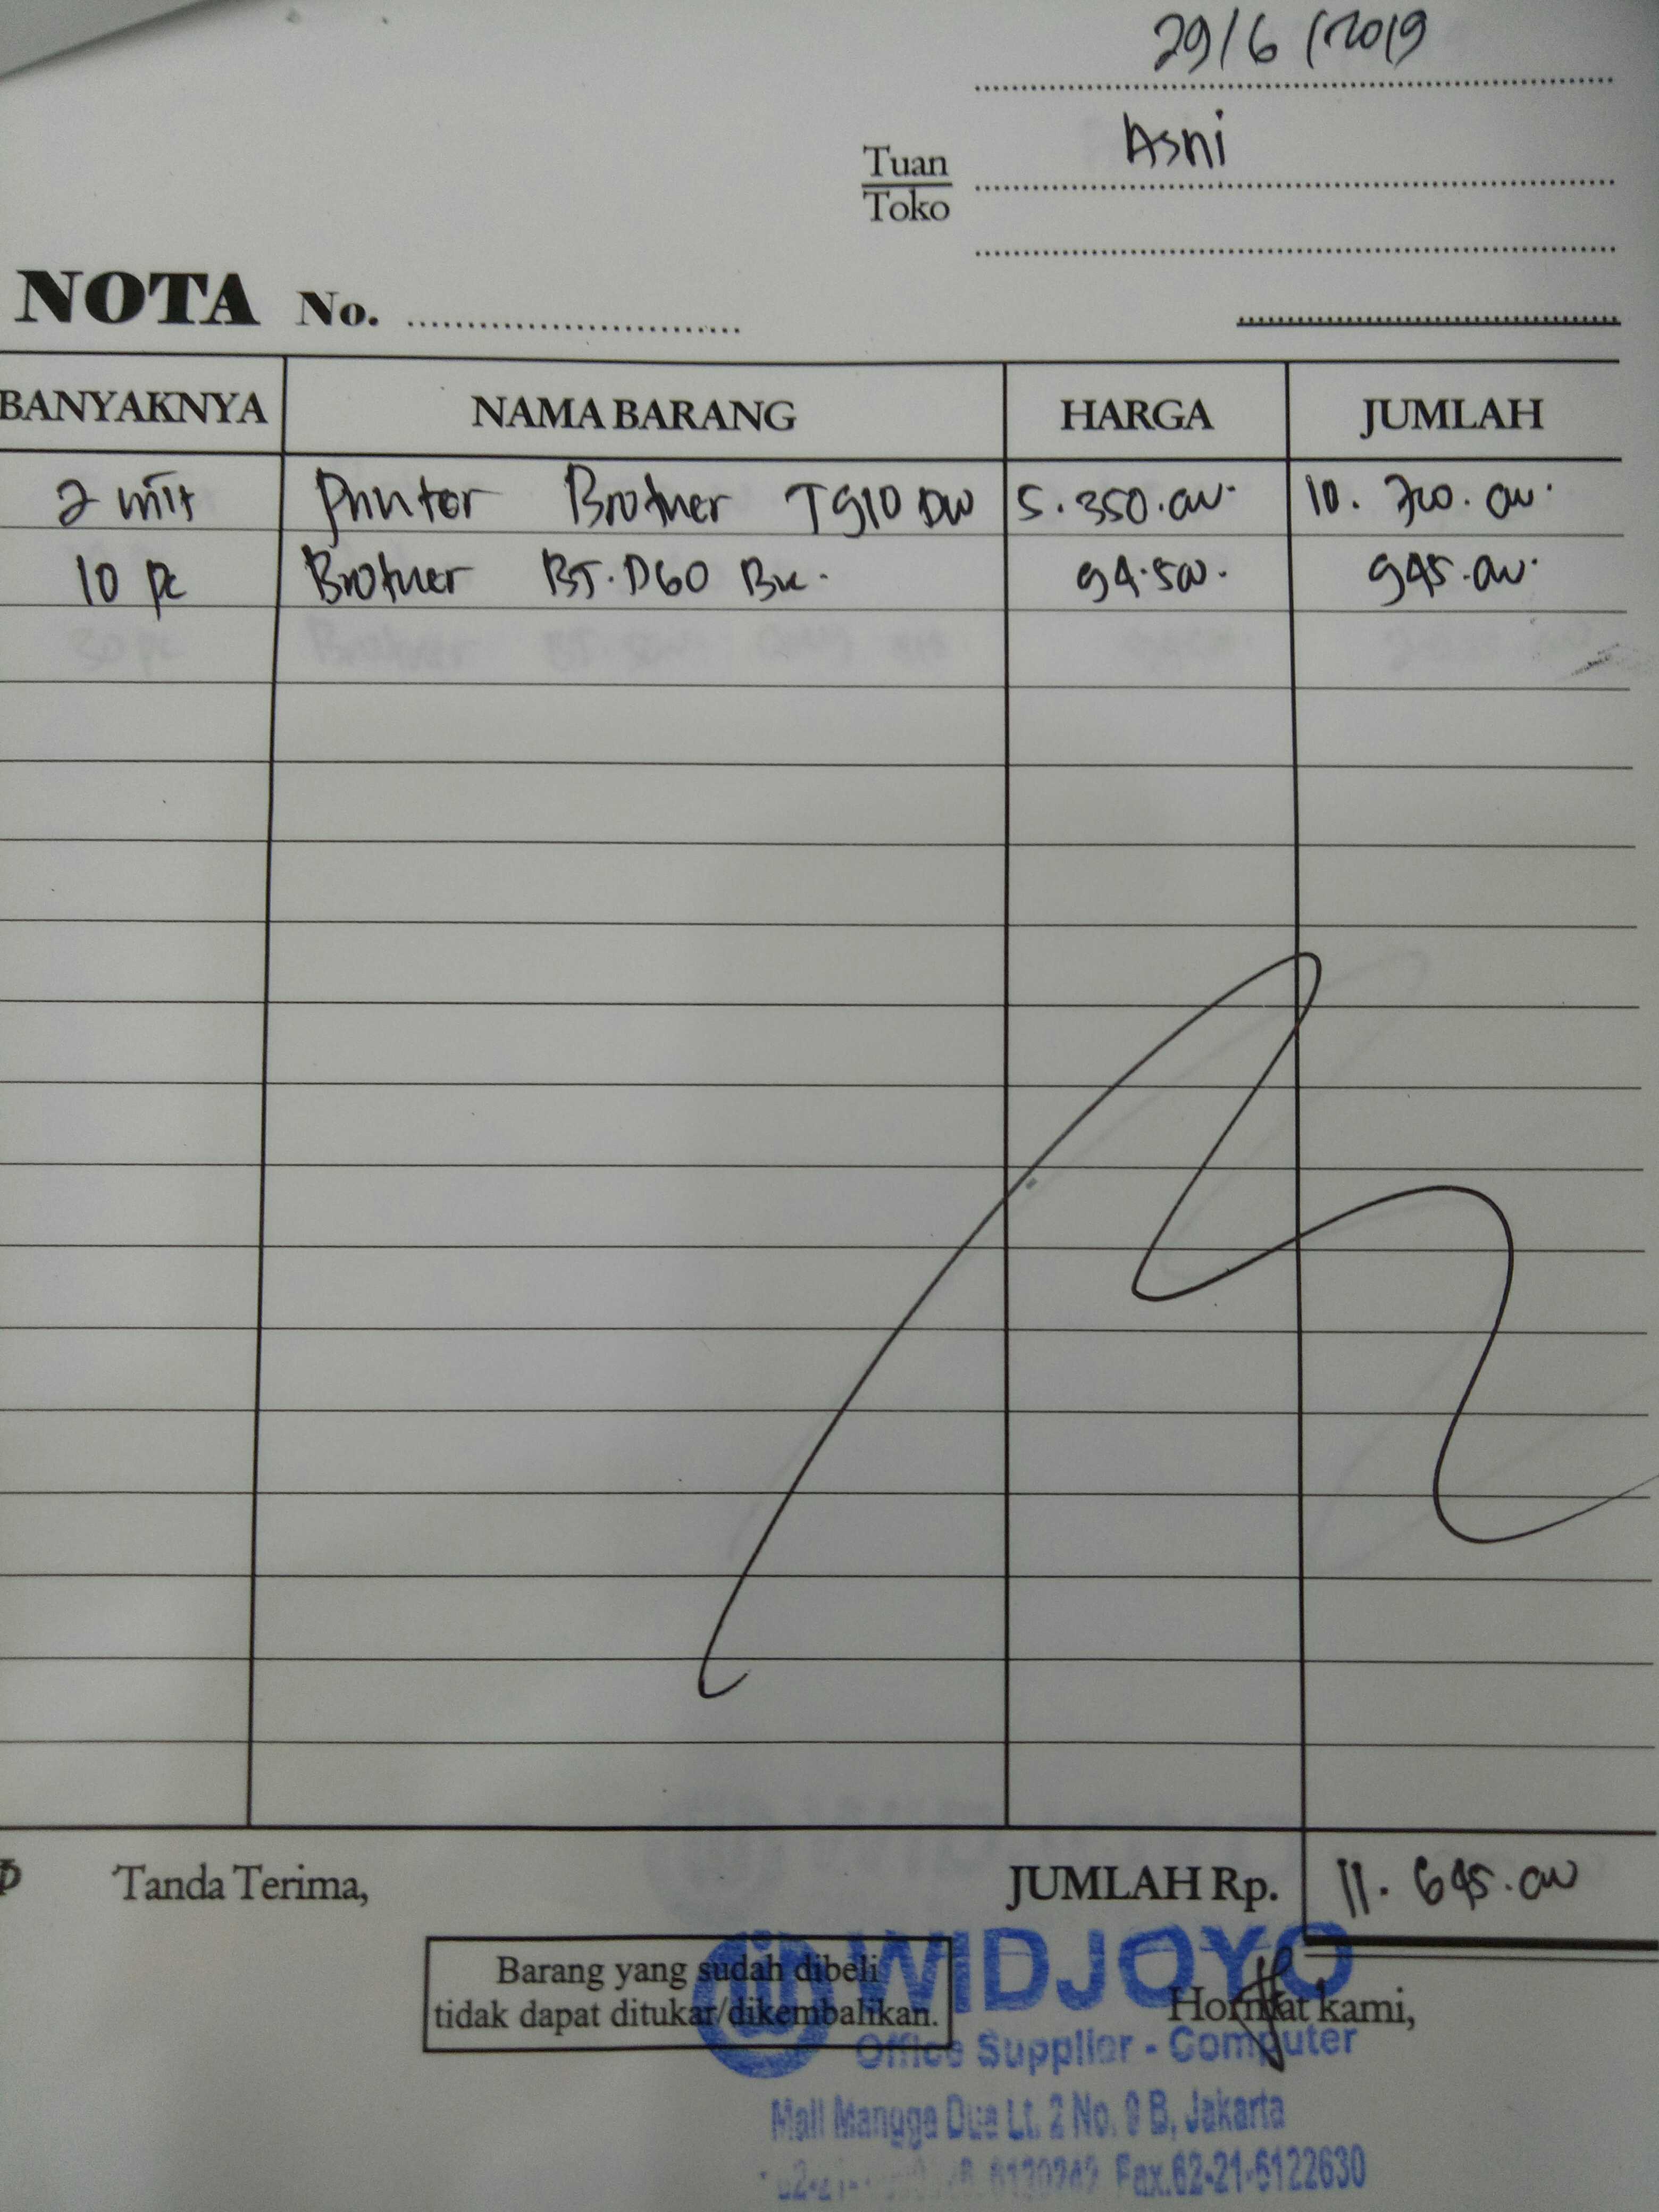 29/6/2019
Tuan Asni
Toko
NOTA No.
BANYAKNYA NAMA BARANG HARGA JUMLAH
2 unit Printer Brother T910 DW 5.350.000 10.700.000
10 pc Brother BT.D60 BK. 94.500. 945.000
Tanda Terima, JUMLAH Rp. 11.645.000
Barang yang sudah dibeli
tidak dapat ditukar/dikembalikan.
WIDJOYO
Hormat kami,
Office Supplier - Computer
Mall Mangga Dua Lt. 2 No. 9 B, Jakarta
Fax.62-21-6122630